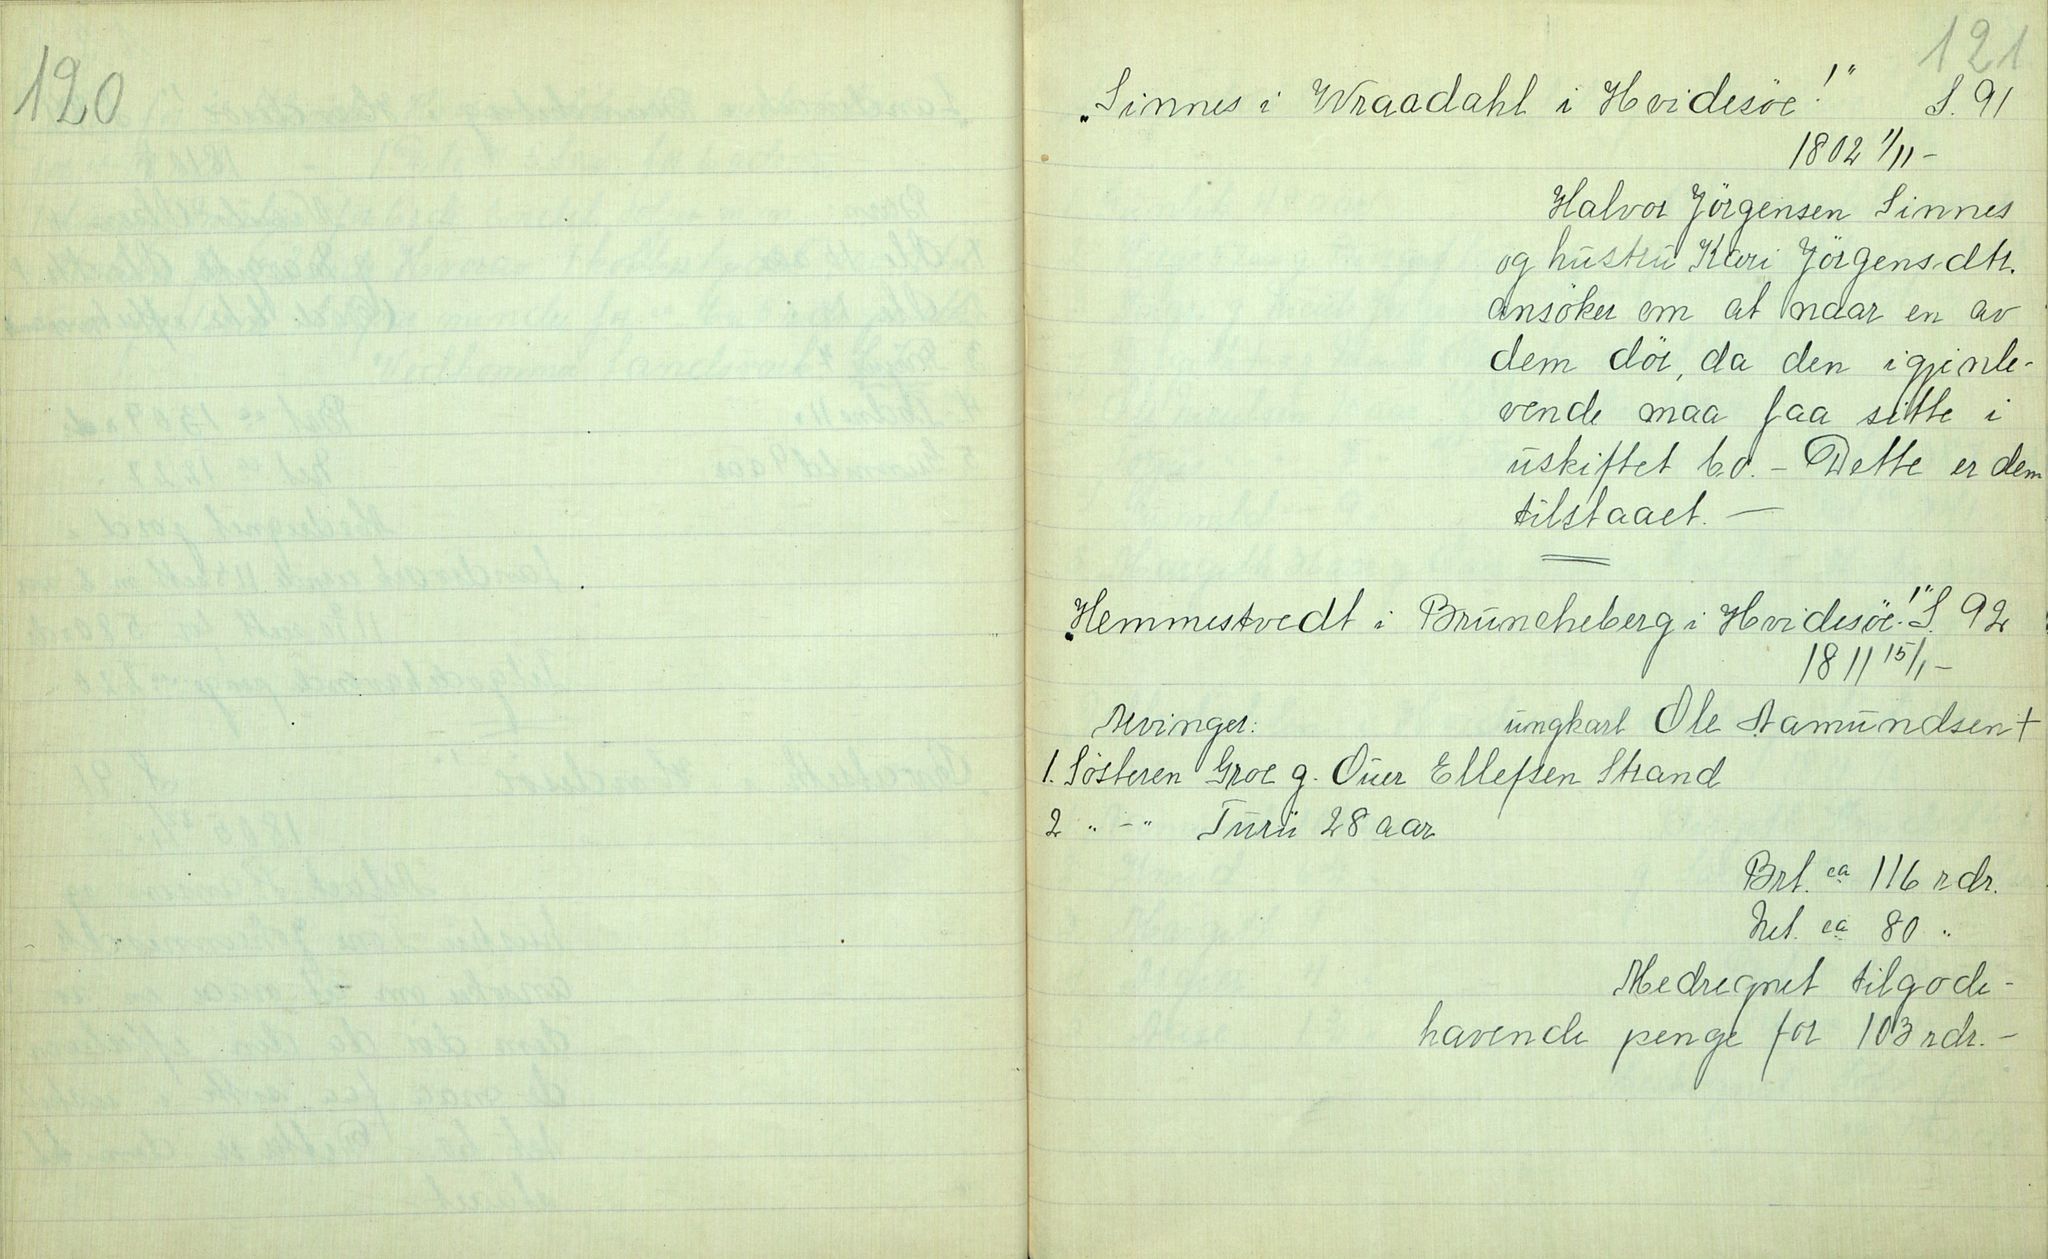 120
121
„Sinnes i Wraadahl i Hvidesöe!" S. 91
1802 1/11 –
Halvor Jörgensen Sinnes
og hustru Kari Jörgensdtr.
ansöker om at naar en av
dem dör, da den igjenle-
vende maa faa sitte i
uskiftet bo. – Dette er dem
tilstaaet. —
„Hemmestvedt i Bruncheberg i Hvidesöe!" S. 92
1811 15/1 –
Arvinger: ungkarl Ole Aamundsen +
1. Sösteren Groe g. Ouer Ellefsen Strand
2 " – " Turu 28 aar
Brt. ca 116 rdr.
Net. ca 80 "
Medregnet tilgode-
havende penge for 103 rdr. –